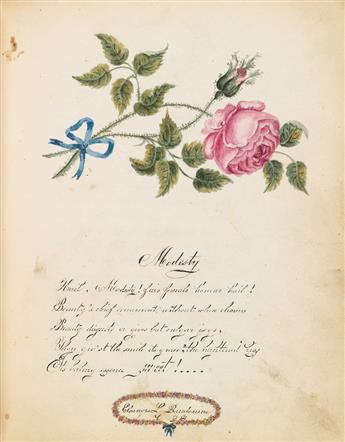 Modesty
Hail, Modesty! fair female honour hail!
Beauty's chief ornament, without whose charms
Beauty disgusts or gives but vulgar joys,
Thou giv'st the smile its grace, the heightened
Its balmy essence sweet! ....
Eleanora L.